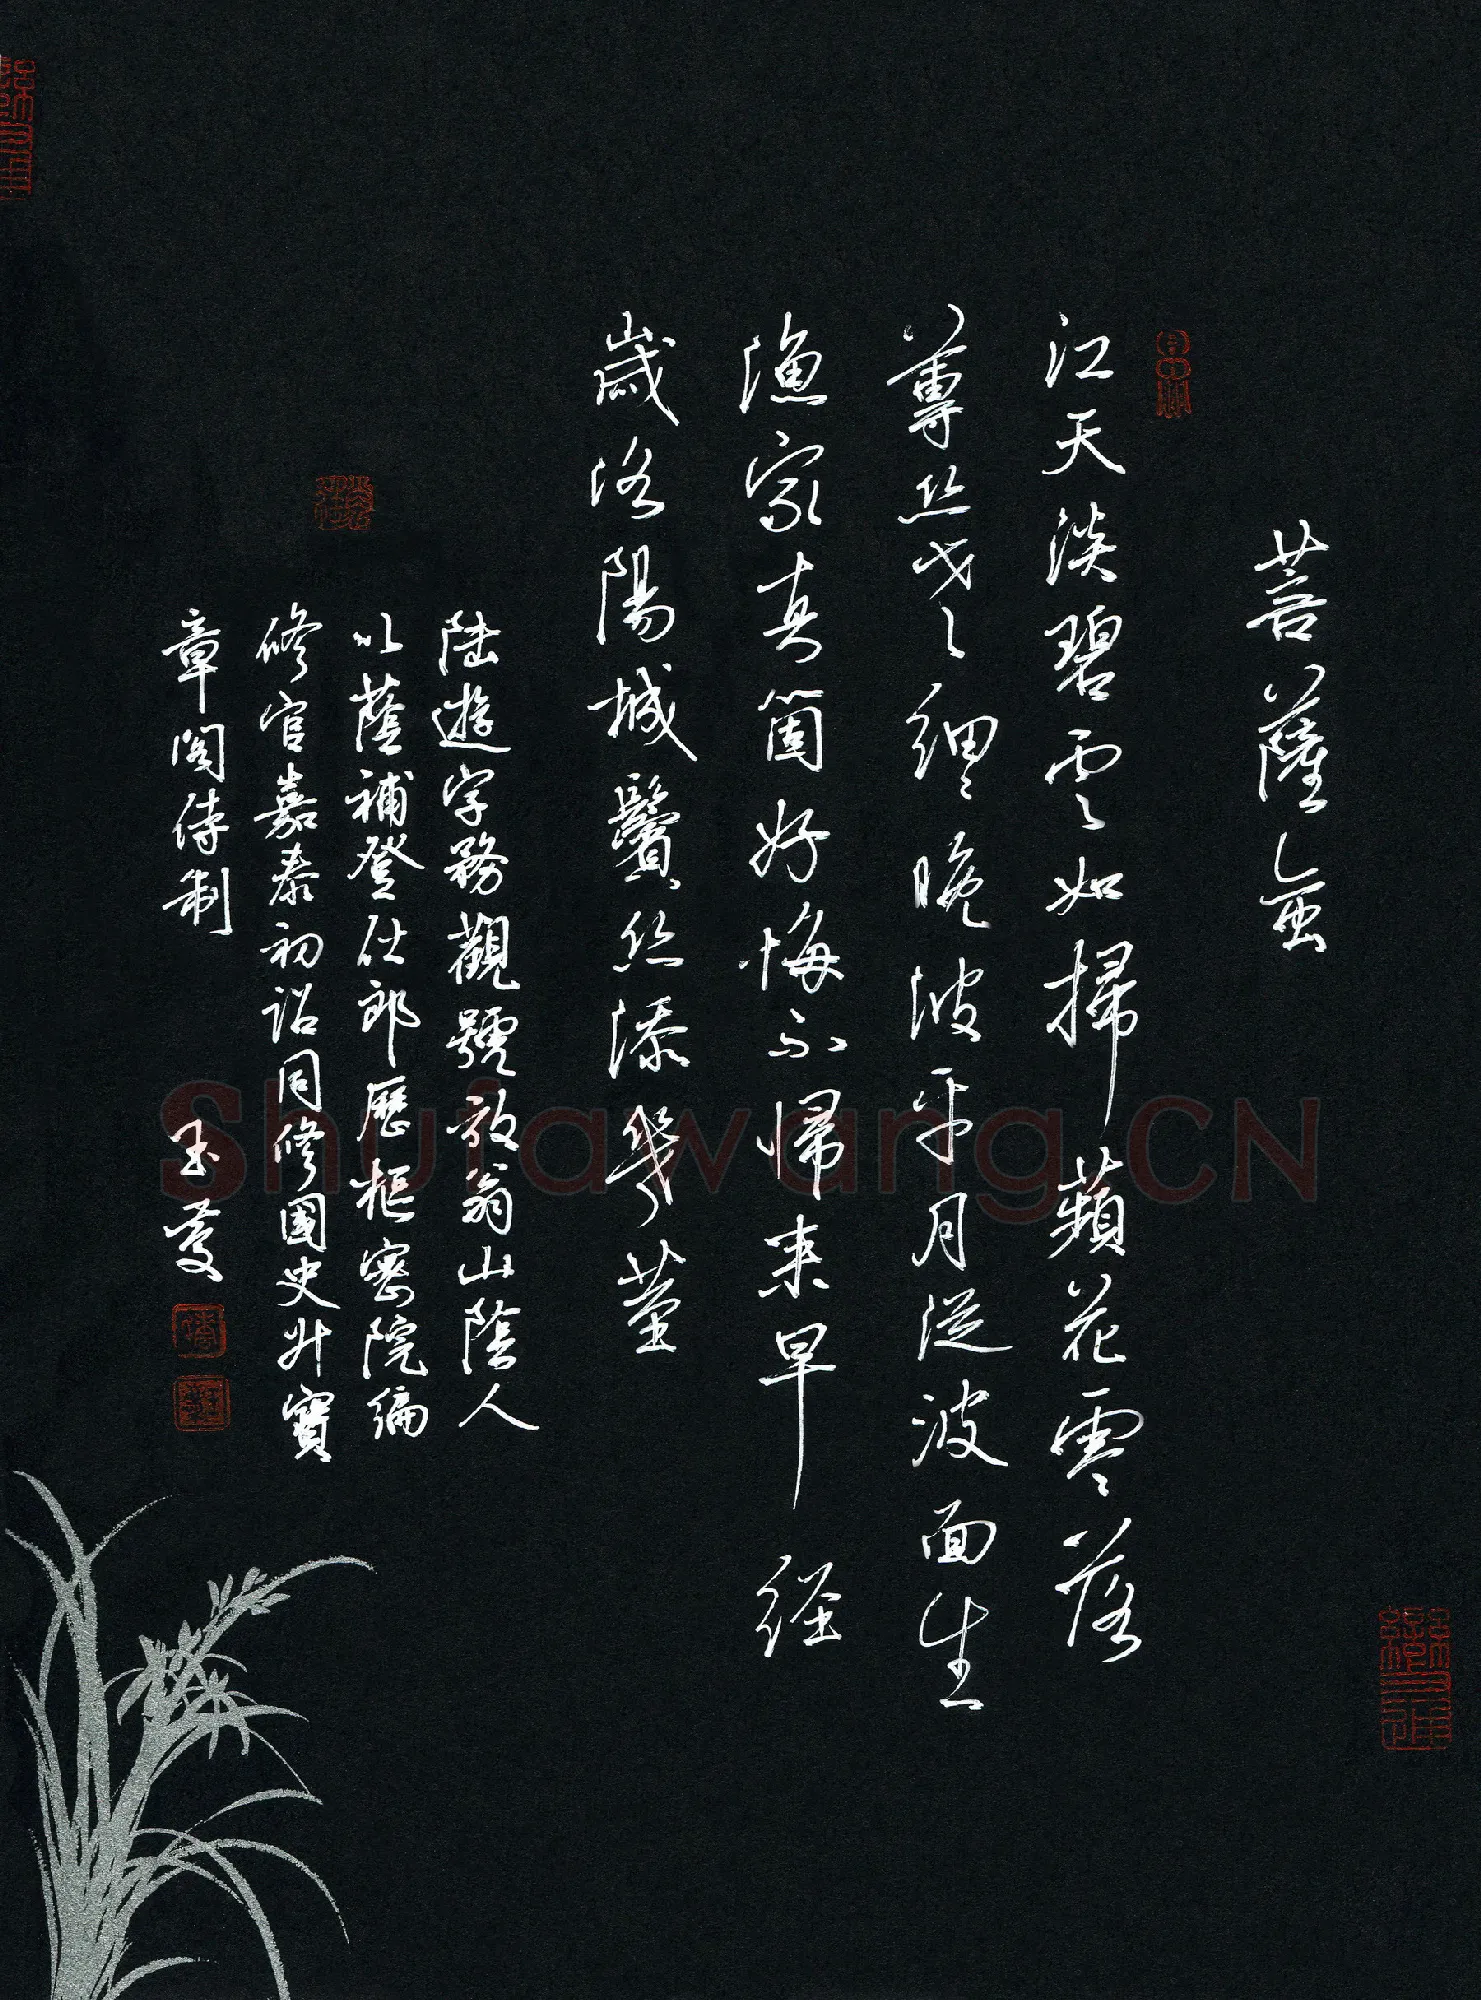 菩薩蛮
江天淡碧雲如掃蘋花零落
蓴丝老細〻晚波平月從波面生
漁家真箇好悔不歸来早経
歲洛陽城鬢丝添幾莖
陸遊字務觀號放翁山陰人
以蔭補登仕郎歷樞密院編
修官嘉泰初詔同修國史升寶
章閣待制 玉
Shufawang.CN